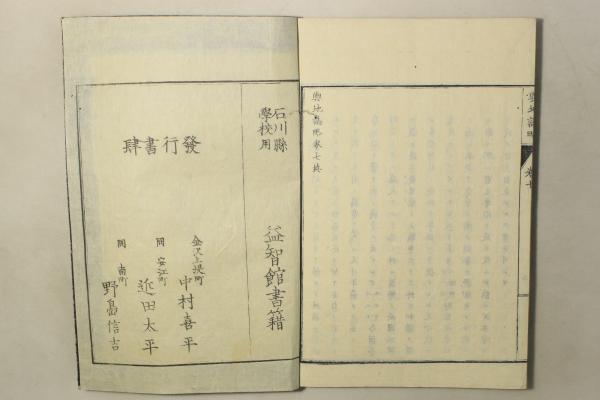 輿地誌略
卷七
輿地誌略卷七終
石川縣
學校用
益智館書籍
發行書肆
金沢上堤町
中村喜平
同 安江町
近田太平
同 南町
野島信吉